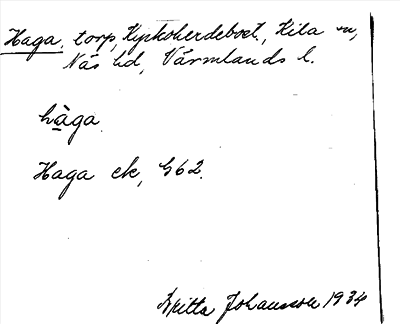 Haga, torp, Kyrkoherdebost., Kila sn,
Näs hd, Värmlands l.
håga
Haga ek, G62.
Britta Johansson 1934